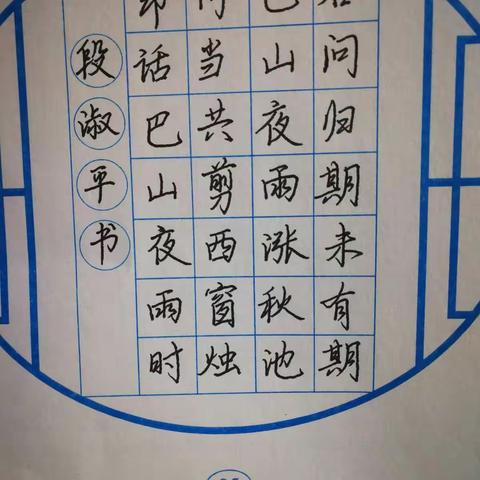 君问归期未有期
巴山夜雨涨秋池
何当共剪西窗烛
却话巴山夜雨时
段淑平书